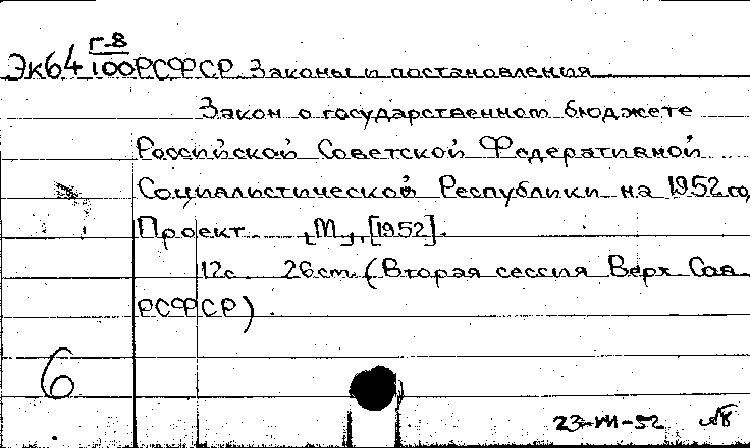 Г-8
Эк64 100 РСФСР Законы и постановления
Закон о государственном бюджете
Российской Советской Федеративной
Социалистической Республики на 1952 год
Проект. [М], [1952].
12с. 26см. (Вторая сессия Верх Сов
РСФСР).
6
23-VII-52